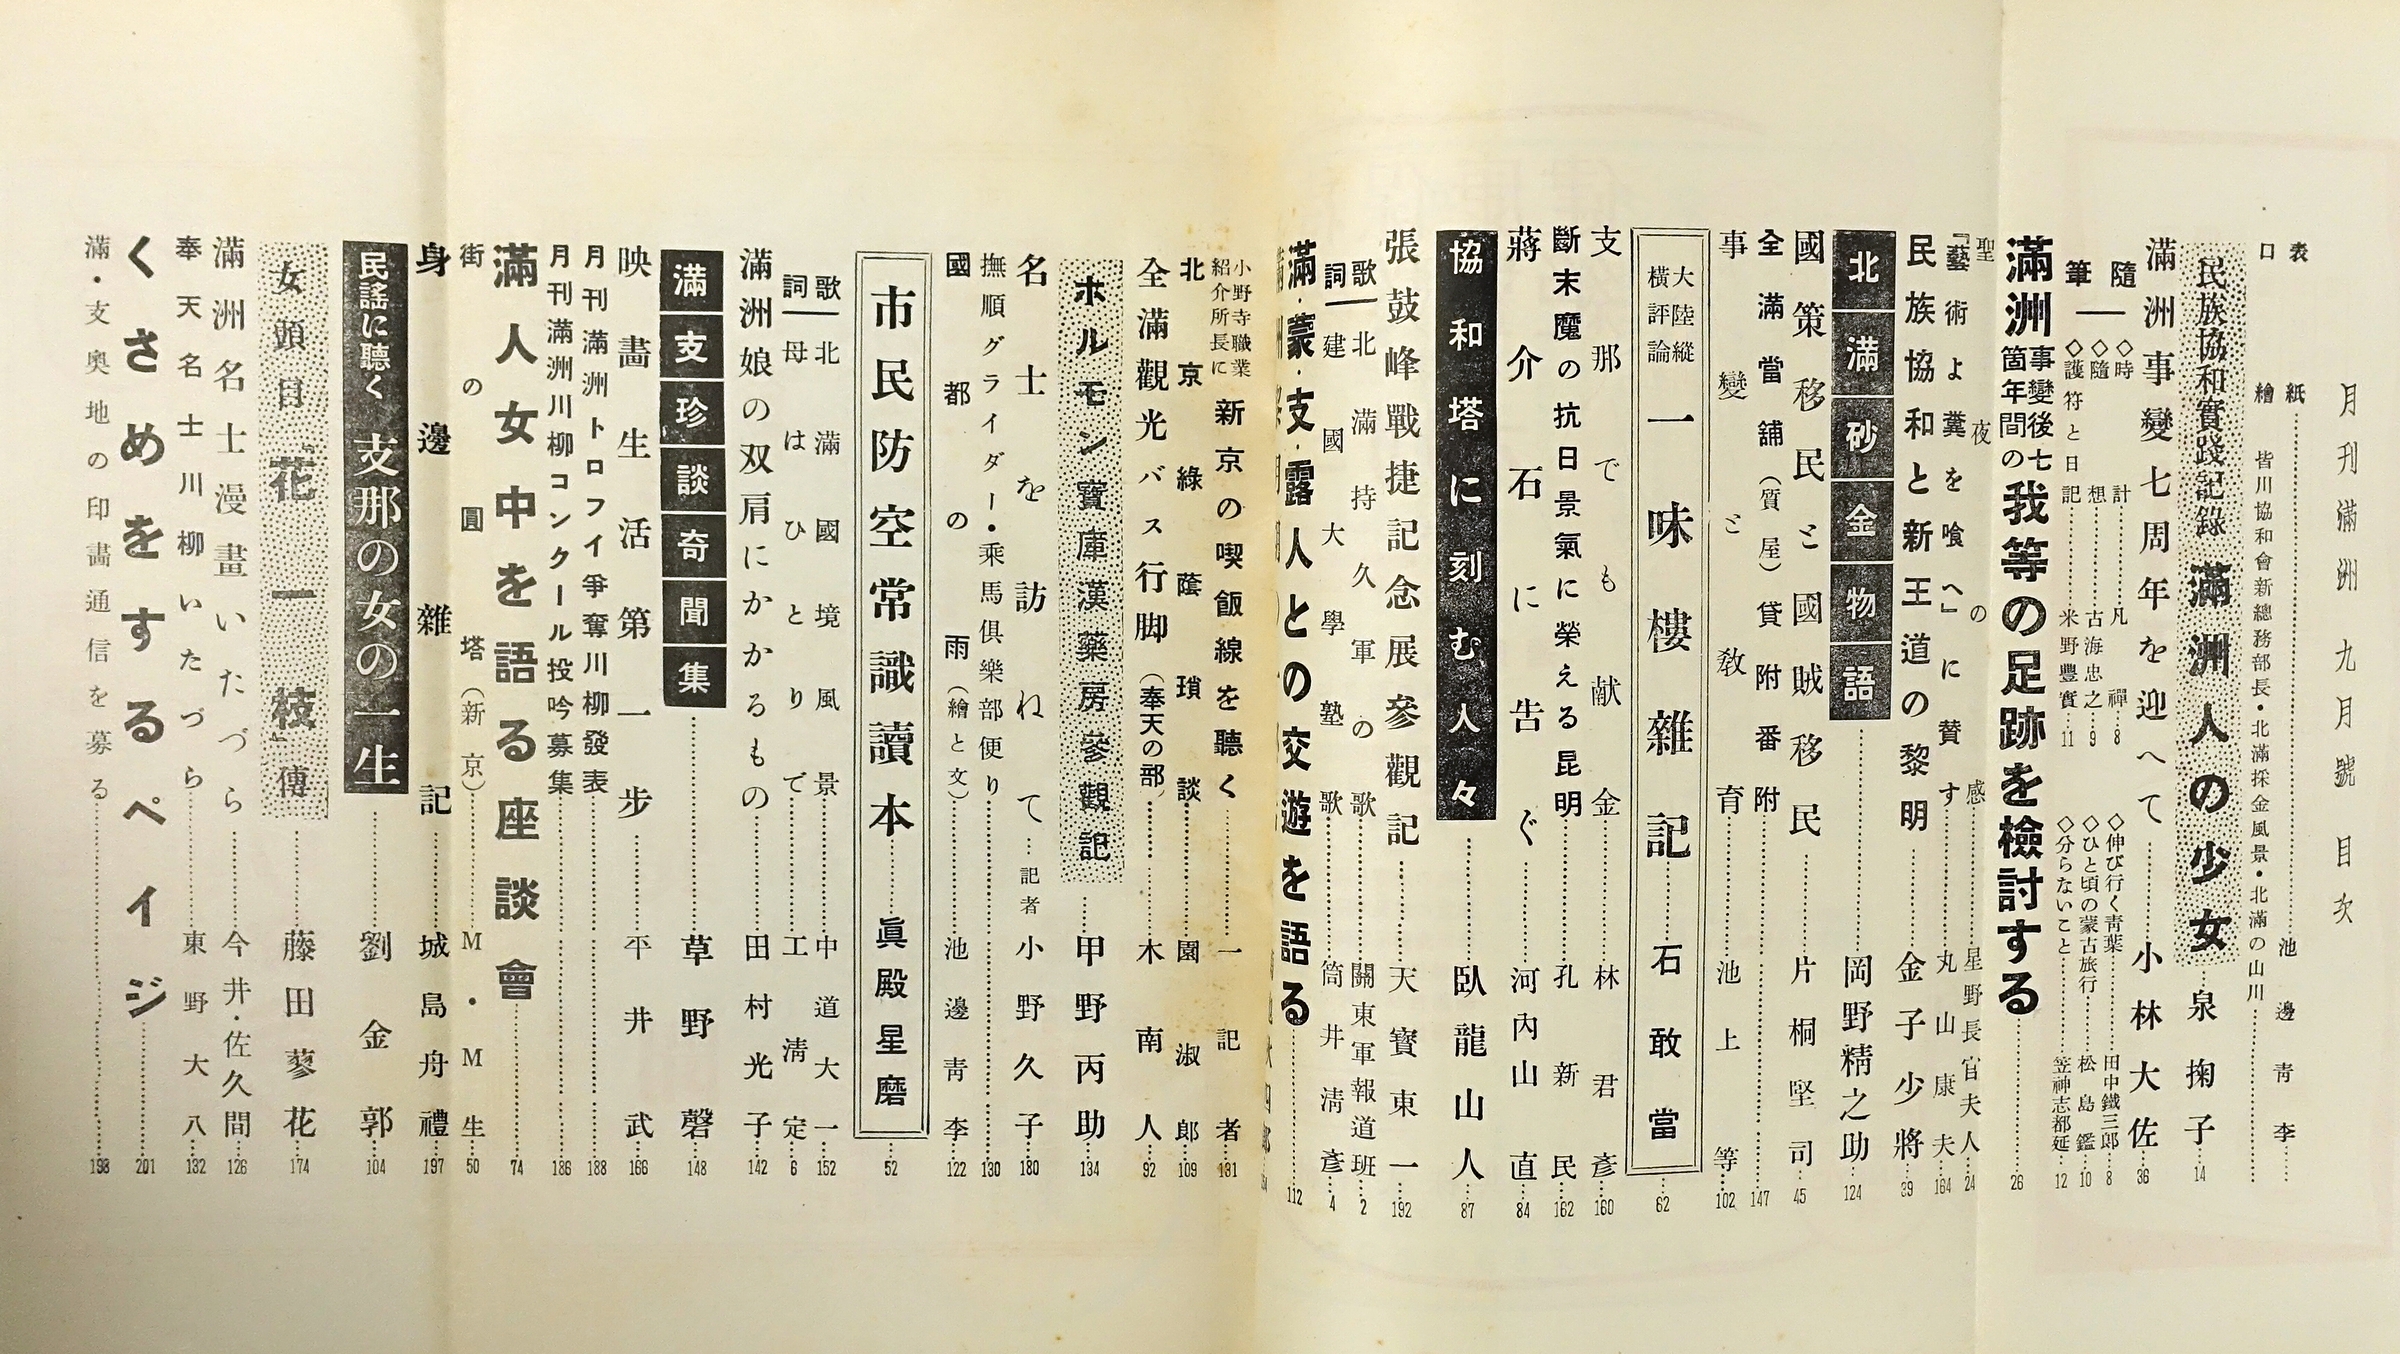 月刊滿洲 九月號 目次
表紙……池邊靑李……
口繪 皆川協和會新總務部長・北滿採金風景・北滿の山川……
民族協和實踐記錄 滿洲人の少女……泉掬子……14
滿洲事變七周年を迎へて……小林大佐……36
隨筆
◇時計……凡禪……8
◇隨想……古海忠之……9
◇護符と日記……米野豐實……11
◇伸び行く靑葉……田中鐵三郎……8
◇ひと頃の蒙古旅行……松島鑑……10
◇分らないこと……笠神志都延……12
滿洲事變後七箇年間の我等の足跡を檢討する……26
聖夜の感……星野長官夫人……24
『藝術よ糞を喰へ』に贊す……丸山康夫……164
民族協和と新王道の黎明……金子少將……39
北滿砂金物語……岡野精之助……124
國策移民と國賊移民……片桐堅司……45
全滿當舖(質屋)貸附番附……147
事變と敎育……池上等……102
大陸縱橫評論 一味樓雜記……石敢當……62
支那でも献金……林君彥……160
斷末魔の抗日景氣に榮える昆明……孔新民……162
蔣介石に告ぐ……河內山直……84
協和塔に刻む人々……臥龍山人……87
張鼓峰戰捷記念展參觀記……天寶東一……192
歌詞―北滿持久軍の歌……關東軍報道班……2
建國大學塾歌……筒井淸彥……4
滿・蒙・支・露人との交遊を語る……112
小野寺職業紹介所長に 新京の喫飯線を聽く……一記者……181
北京綠蔭瑣談……園淑郎……109
全滿觀光バス行脚(奉天の部)……木南人……92
ホルモン寶庫漢藥房參觀記……甲野丙助……134
名士を訪ねて…記者 小野久子……180
撫順グライダー・乘馬俱樂部便り……130
國都の雨(繪と文)……池邊靑李……122
市民防空常識讀本……眞殿星磨……52
歌詞―北滿國境風景……中道大一……152
母はひとりで……工淸定……6
滿洲娘の双肩にかかるもの……田村光子……142
滿支珍談奇聞集……草野磬……148
映畫生活第一步……平井武……166
月刊滿洲トロフイ爭奪川柳發表……188
月刊滿洲川柳コンクール投吟募集……186
滿人女中を語る座談會……74
街の圓塔(新京)……M・M生……50
身邊雜記……城島舟禮……197
民謠に聽く 支那の女の一生……劉金郭……104
女頭目『花一枝』傳……藤田蓼花……174
滿洲名士漫畫いたづら……今井・佐久間……126
奉天名士川柳いたづら……東野大八……132
くさめをするペイジ……201
滿・支奧地の印畫通信を募る……193